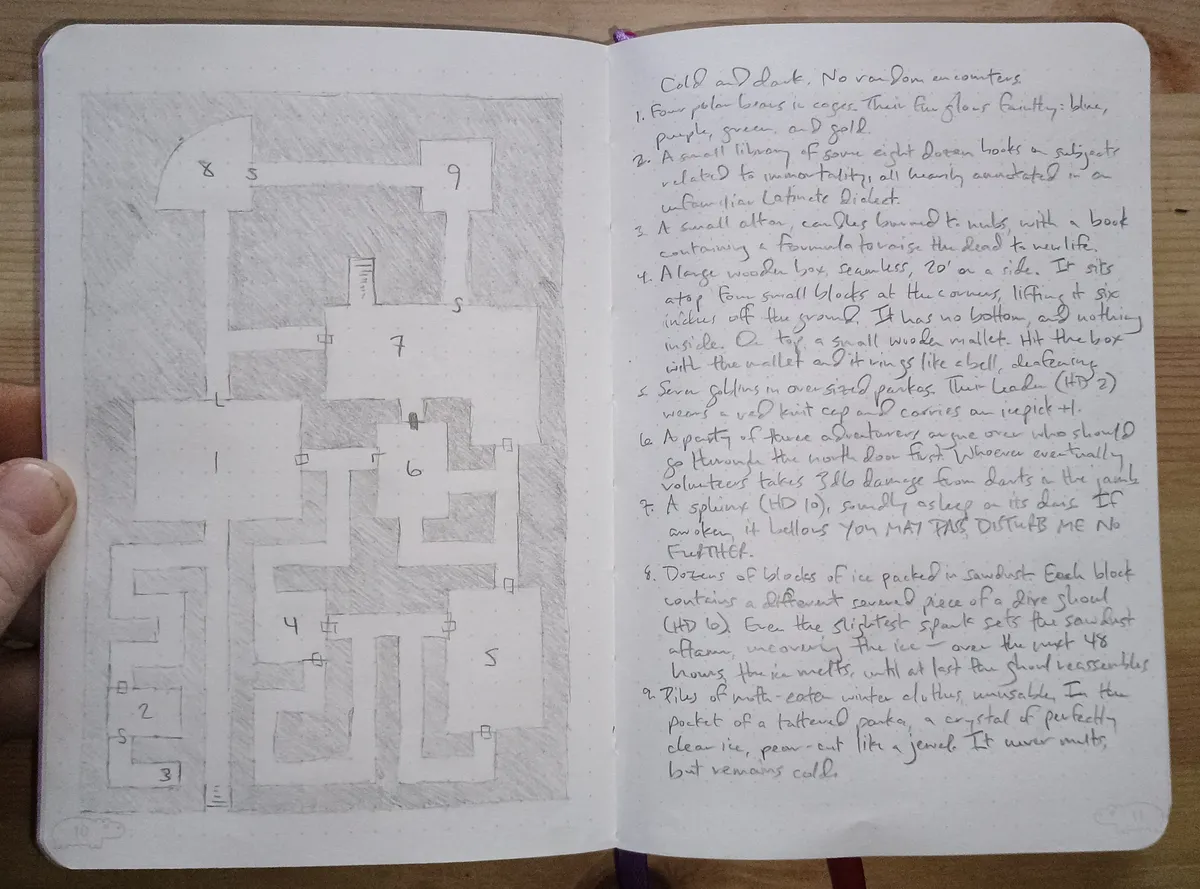 8
S
9
S
7
L
1
6
4
5
2
S
3
10
Cold and dark. No random encounters.
1. Four polar bears in cages. Their fur glows faintly: blue,
purple, green, and gold.
2. A small library of some eight dozen books on subjects
related to immortality, all heavily annotated in an
unfamiliar Latinate dialect.
3. A small altar, candles burned to nubs, with a book
containing a formula to raise the dead to new life.
4. A large wooden box, seamless, 20' on a side. It sits
atop four small blocks at the corners, lifting it six
inches off the ground. It has no bottom, and nothing
inside. On top, a small wooden mallet. Hit the box
with the mallet and it rings like a bell, deafening.
5. Seven goblins in oversized parkas. Their leader (HD 2)
wears a red knit cap and carries an icepick +1.
6. A party of three adventurers argue over who should
go through the north door first. Whoever eventually
volunteers takes 3d6 damage from darts in the jamb.
7. A sphinx (HD 10), soundly asleep on its dais. If
awoken, it bellows YOU MAY PASS, DISTURB ME NO
FURTHER.
8. Dozens of blocks of ice packed in sawdust. Each block
contains a different severed piece of a dire ghoul
(HD 6). Even the slightest spark sets the sawdust
aflame, uncovering the ice – over the next 48
hours, the ice melts, until at last the ghoul reassembles.
9. Piles of moth-eaten winter clothes, unusable. In the
pocket of a tattered parka, a crystal of perfectly
clear ice, pear-cut like a jewel. It never melts,
but remains cold.
11